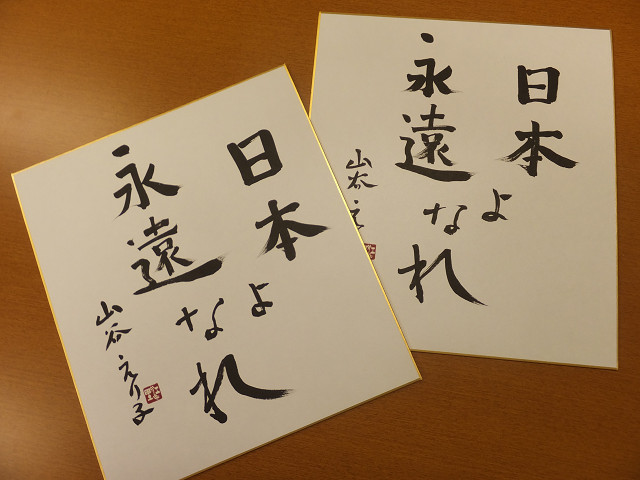 日本よ
永遠なれ
山谷えり子
日本よ
永遠なれ
山谷え